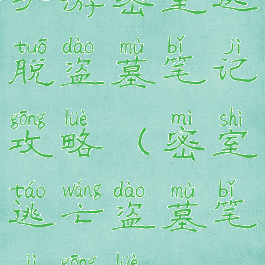 手游密室逃
tuō dào mù bǐ jì
脱盗墓笔记
gōng lüè mì shì
攻略（密室
táo wáng dào mù bǐ
逃亡盗墓笔
jì gōng lüè